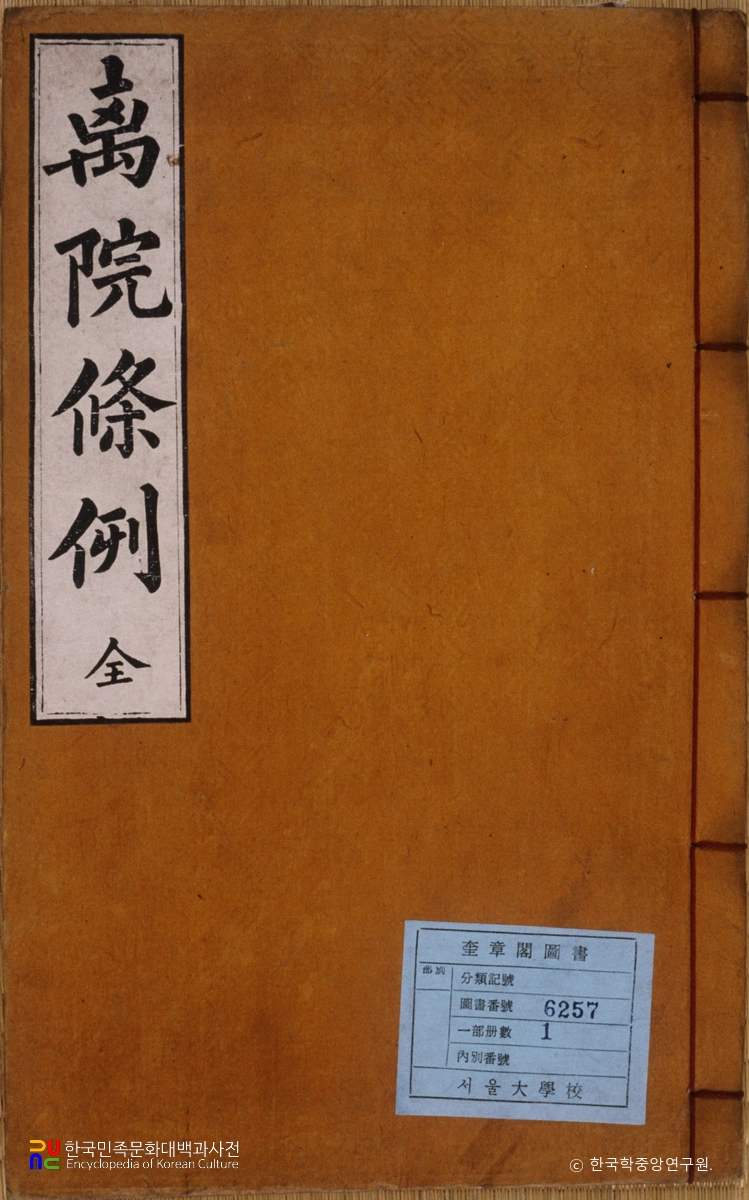 离院條例 全
奎章閣圖書
部別
分類記號
圖書番號 6257
一部册數 1
內別番號
서울大學校
한국민족문화대백과사전
Encyclopedia of Korean Culture
ⓒ 한국학중앙연구원.